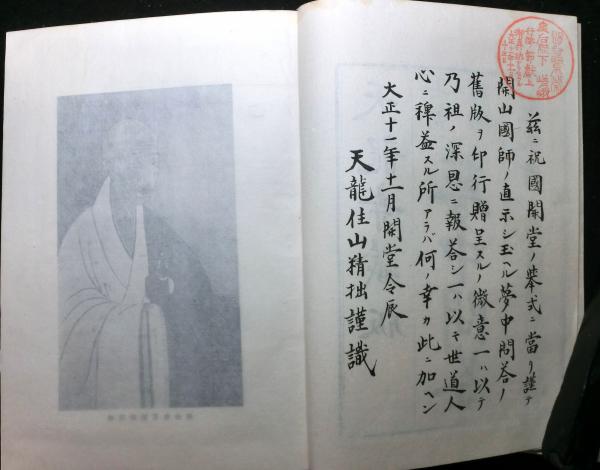 茲ニ祝國開堂ノ擧式ニ當リ謹テ
開山國師ノ直示シ玉ヘル夢中問答ノ
舊版ヲ印行贈呈スルノ微意一ハ以テ
乃祖ノ深恩ニ報答シ一ハ以テ世道人
心ニ稗益スル所アラバ何ノ幸カ此ニ加ヘン
大正十一年十一月開堂令辰
天龍住山精拙謹識